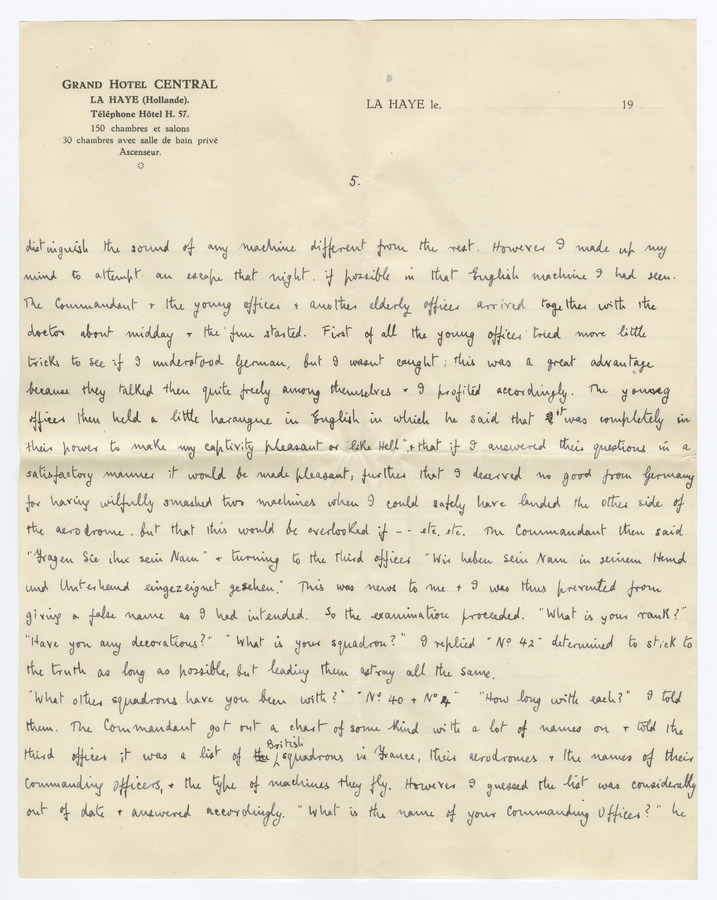 GRAND HOTEL CENTRAL
LA HAYE (Hollande).
Téléphone Hôtel H. 57.
150 chambres et salons
30 chambres avec salle de bain privé
Ascenseur.
LA HAYE le, 19
5.
distinguish the sound of any machine different from the rest. However I made up my
mind to attempt an escape that night, if possible in that English machine I had seen.
The Commandant + the young officer + another elderly officer arrived together with the
doctor about midday + the fun started. First of all the young officer tried more little
tricks to see if I understood German, but I wasnt caught; this was a great advantage
because they talked then quite freely among themselves + I profited accordingly. The young
officer then held a little harangue in English in which he said that it was completely in
their power to make my captivity pleasant or "like Hell", + that if I answered their questions in a
satisfactory manner it would be made pleasant; further that I deserved no good from Germany
for having wilfully smashed two machines when I could safely have landed the other side of
the aerodrome. but that this would be overlooked if -- etc. etc. The Commandant then said
"Fragen Sie ihn sein Nam" + turning to the third officer "Wir haben sein Nam in seinem Hemd
und Unterhemd eingezeignet gesehen." This was news to me + I was thus prevented from
giving a false name as I had intended. So the examination proceeded. "What is your rank?"
"Have you any decorations?" "What is your squadron?" I replied "No 42" determined to stick to
the truth as long as possible, but leading them astray all the same.
"What other squadrons have you been with?" "No 40 + No 4" "How long with each?" I told
them. The Commandant got out a chart of some kind with a lot of names on + told the
third officer it was a list of the British squadrons in France, their aerodromes + the names of their
Commanding Officers, + the type of machines they fly. However I guessed the list was considerably
out of date + answered accordingly. "What is the name of your Commanding Officer?" he